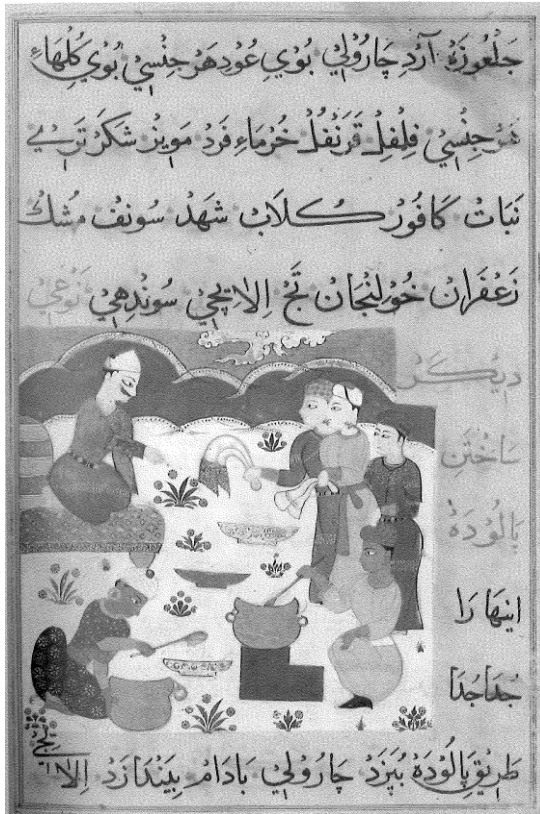 جَلْغُوزَهْ آرْدِ چَارُولِي بُوْيِ عُوْد هَرْ جِنْسِيْ بُوْيِ كُلْهَاءِ
هَرْ جِنْسِيْ فِلْفِلْ قَرَنْفُلْ خُرْمَاءِ فَرْد مَوِيْز شَكَرْ تَرِيْ
نَبَاتْ كَافُوْر كُلَابْ شَهَدْ سُونْف مُشْكْ
زَعْفَرَانْ خُوْلِنْجَانْ تَجْ اِلَاپچِيْ سُوْنْدهِيْ نَوْعِيْ
دِيْكَرْ
سَاخْتَنْ
پَالُوْدَهْ
اينهَا رَا
جُدَا جُدَا
طَرِيْقِ پَالُوْدَهْ بِپَزَدْ چَارُولِيْ بَادَامْ بِيَنْدَازَدْ اِلَا